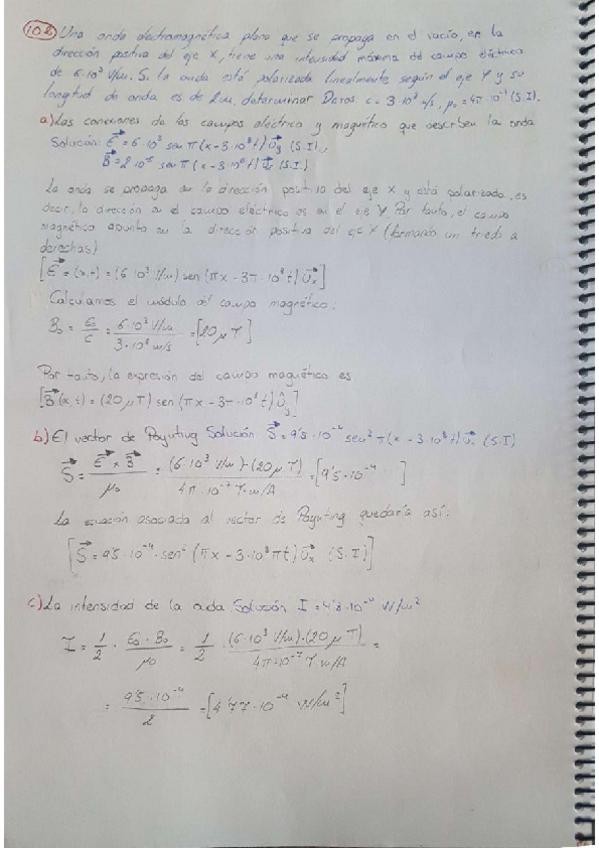 102 Una onda electromagnética plana que se propaga en el vacío, en la
dirección positiva del eje X, tiene una intensidad máxima del campo eléctrico
de 6·10³ V/m. Si la onda está polarizada linealmente según el eje Y y su
longitud de onda es de 2m, determinar Datos c = 3·10⁸ m/s, μ₀ = 4π·10⁻⁷ (S.I).
a) Las conexiones de los campos eléctrico y magnético que describen la onda
Solución: E = 6·10³ sen π(x - 3·10⁸ t) U⃗y (S.I)
B⃗ = 2·10⁻⁵ sen π(x - 3·10⁸ t) U⃗z (S.I.)
La onda se propaga en la dirección positiva del eje X y está polarizada, es
decir, la dirección en el campo eléctrico es en el eje Y. Por tanto, el campo
magnético apunta en la dirección positiva del eje X (formando un triedo a
derechas)
[E⃗ = (x,t) = (6·10³ V/m) sen (πx - 3π·10⁸ t) U⃗x]
Calculamos el módulo del campo magnético:
B₀ = E₀/c = 6·10³ V/m / 3·10⁸ m/s = [20 μT]
Por tanto, la expresión del campo magnético es
[B⃗ (x,t) = (20 μT) sen (πx - 3π·10⁸ t) U⃗y]
b) El vector de Poynting Solución S⃗ = 9'5·10⁻⁴ sen² π(x - 3·10⁸ t) U⃗x (S.I)
S⃗ = E⃗ x B⃗ / μ₀ = (6·10³ V/m)·(20 μT) / 4π·10⁻⁷ T·m/A = [9'5·10⁻⁴ ]
La ecuación asociada al vector de Poynting quedaría así:
[S⃗ = 9'5·10⁻⁴·sen² (πx - 3·10⁸ πt) U⃗x (S.I)]
c) La intensidad de la onda Solución I = 4'8·10⁻⁴ W/m²
I = 1/2 · E₀·B₀ / μ₀ = 1/2 · (6·10³ V/m)·(20 μT) / 4π·10⁻⁷ T·m/A =
= 9'5·10⁻⁴ / 2 = [4'77·10⁻⁴ W/m²]